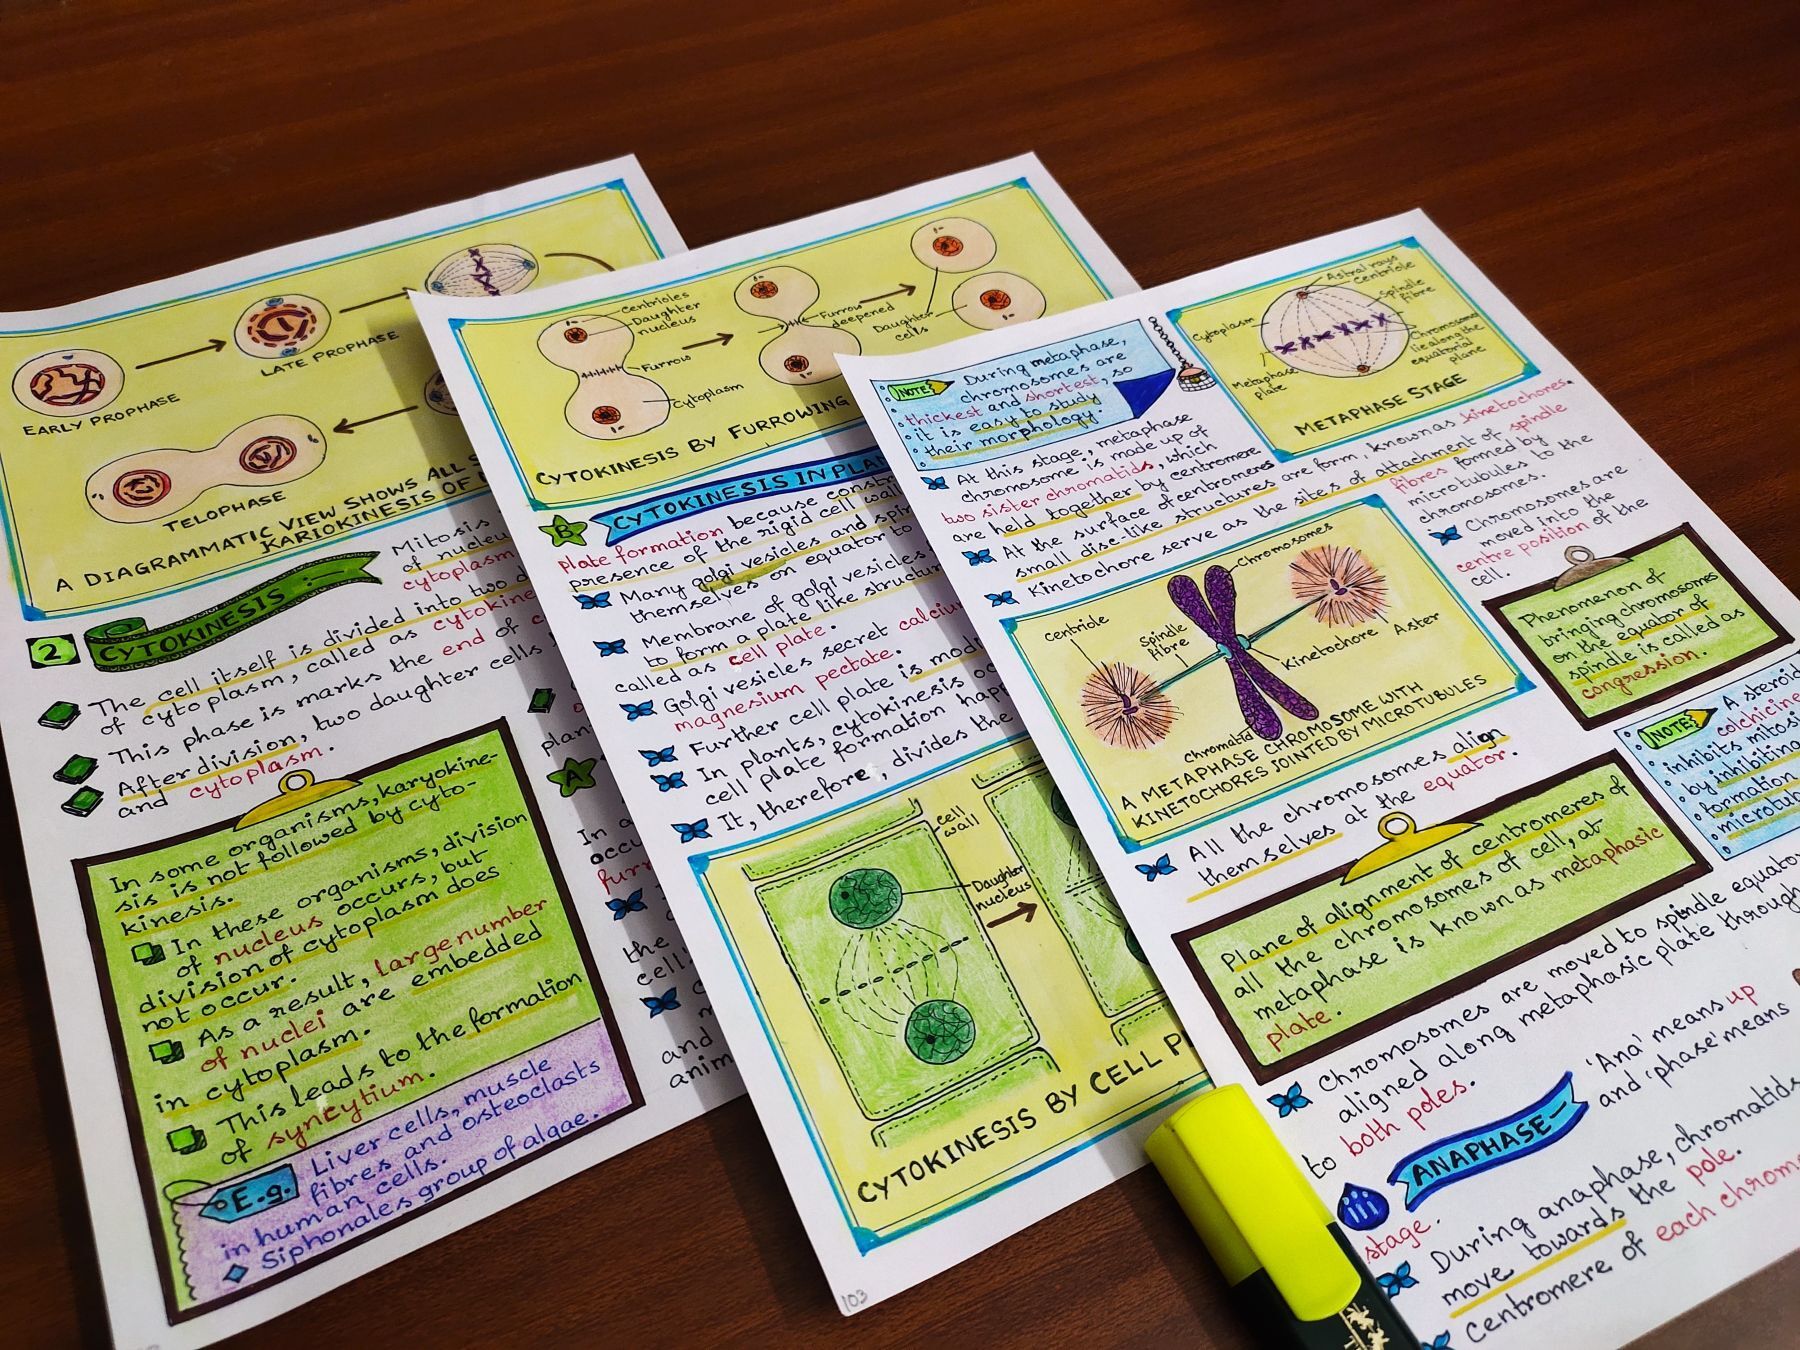 EARLY PROPHASE
LATE PROPHASE
TELOPHASE
A DIAGRAMMATIC VIEW SHOWS ALL
KARIOKINESIS OF
Mitosis
of nucleu
cytoplasm
2 CYTOKINESIS :-
The cell itself is divided into two
of cytoplasm, called as cytokine
This phase is marks the end of
After division, two daughter cells
and cytoplasm.
In some organisms, karyokine-
sis is not followed by cyto-
kinesis.
In these organisms, division
of nucleus occurs, but
division of cytoplasm does
not occur.
As a result, large number
of nuclei are embedded
in cytoplasm.
This leads to the formation
of syncytium.
E.g. Liver cells, muscle
fibres and osteoclasts
in human cells.
Siphonales group of algae.
Centrioles
Daughter
nucleus
Furrow
Cytoplasm
Furrow
deepened
Daughter
cells
CYTOKINESIS BY FURROWING
B CYTOKINESIS IN PLAN
Plate formation because constr
presence of the rigid cell wall
Many golgi vesicles and spin
themselves on equator to
Membrane of golgi vesicles
to form a plate like structur
called as cell plate.
Golgi vesicles secret calciu
magnesium pectate.
Further cell plate is modi
In plants, cytokinesis oc
cell plate formation happ
It, therefore, divides the
plan
A
In a
occu
furr
the
cell.
and
anim
cell
wall
Daughter
nucleus
CYTOKINESIS BY CELL P
103
NOTE During metaphase,
chromosomes are
thickest and shortest, so
it is easy to study
their morphology.
Astral rays
Centriole
Spindle
fibre
Cytoplasm
Chromosomes
lie along the
equatorial
plane
Metaphase
plate
METAPHASE STAGE
At this stage, metaphase
chromosome is made up of
two sister chromatids, which
are held together by centromere
At the surface of centromeres
small disc-like structures are form, known as kinetochores.
Kinetochore serve as the sites of attachment of spindle
fibres formed by
microtubules to the
chromosomes.
Chromosomes are
moved into the
centre position of the
cell.
Centriole
Spindle
fibre
Chromosomes
Kinetochore
Aster
Chromatid
A METAPHASE CHROMOSOME WITH
KINETOCHORES JOINTED BY MICROTUBULES
Phenomenon of
bringing chromosomes
on the equator of
spindle is called as
congression.
NOTE A steroid
colchicine
inhibits mitosi
by inhibiting
formation
microtub
All the chromosomes align
themselves at the equator.
Plane of alignment of centromeres of
all the chromosomes of cell, at
metaphase is known as metaphasic
plate.
Chromosomes are moved to spindle equator
aligned along metaphasic plate through
to both poles.
iii ANAPHASE :- 'Ana' means up
and 'phase' means
stage.
During anaphase, chromatids
move towards the pole.
Centromere of each chromo